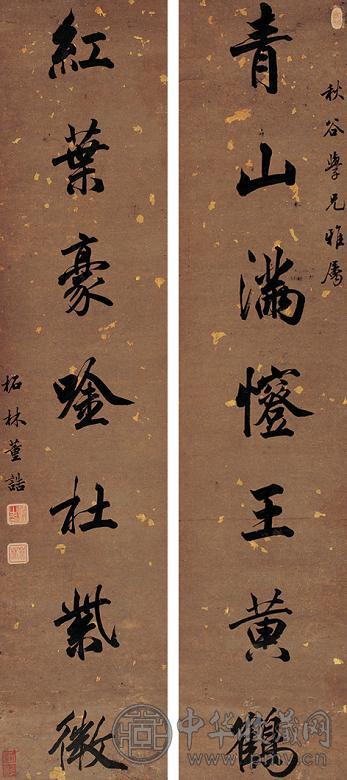 秋谷學兄雅屬
青山滿王黃鶴
紅葉豪唫杜紫微
柘林董誥
中华收藏网